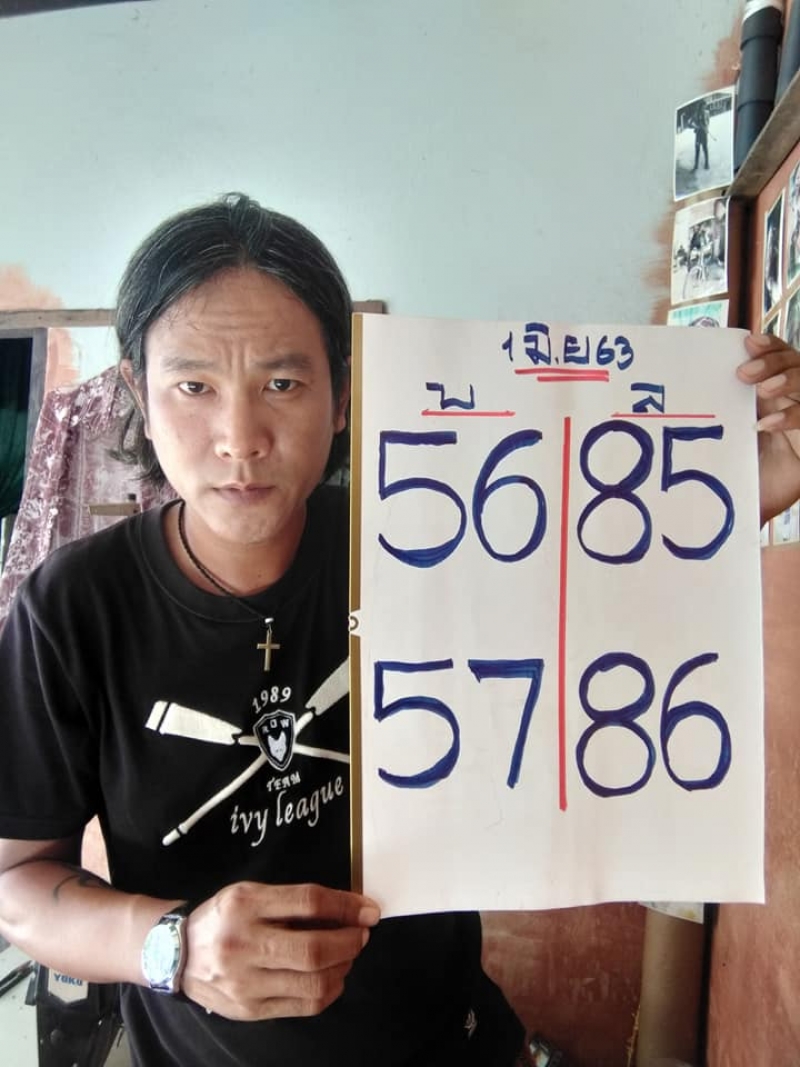 1 มิ.ย 63
บ ล
56 85
57 86
1989
ROW
TEAM
ivy league